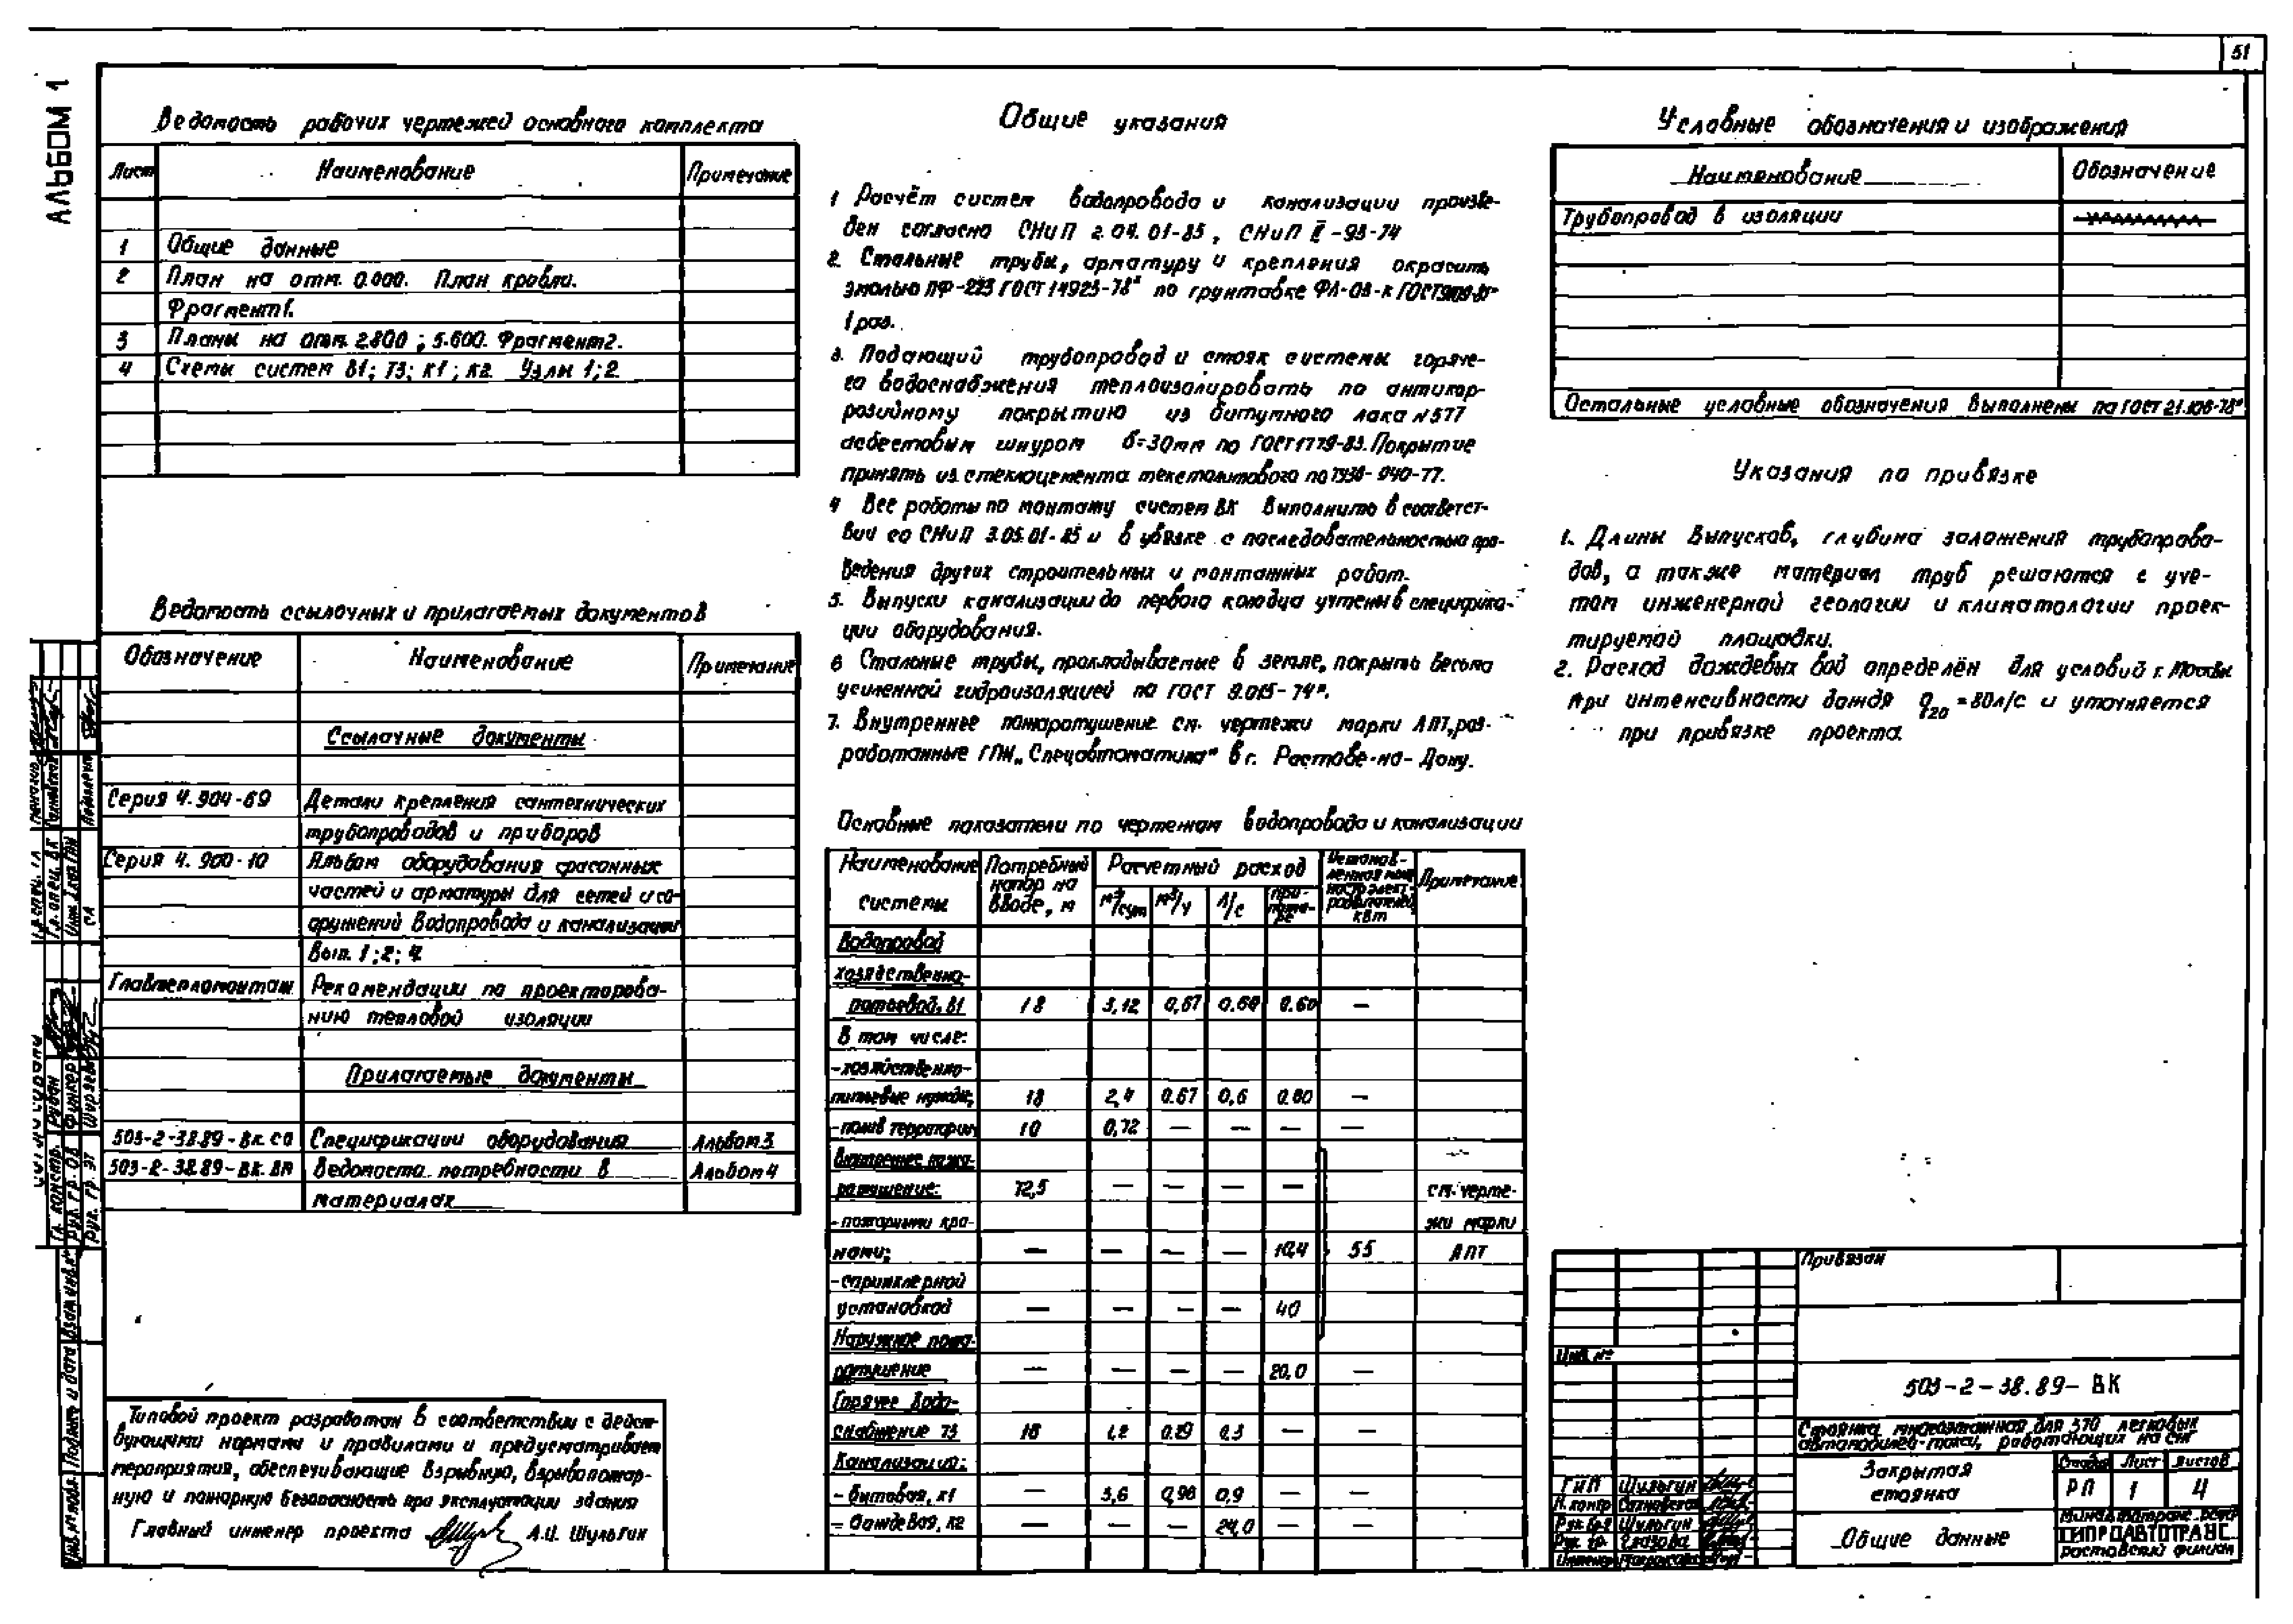 51
АЛЬБОМ 1
Ведомость рабочих чертежей основного комплекта
Лист Наименование Примечание
1 Общие данные
2 План на отм. 0.000. План кровли.
Фрагмент 1.
3 Планы на отм. 2.800 ; 5.600. Фрагмент 2.
4 Схемы систем В1; Т3; К1; К2. Узлы 1; 2.
Ведомость ссылочных и прилагаемых документов
Обозначение Наименование Примечание
Ссылочные документы
Серия 4.904-69 Детали крепления сантехнических
трубопроводов и приборов
Серия 4.900-10 Альбом оборудования фасонных
частей и арматуры для сетей и со-
оружений водопровода и канализации
Вып. 1; 2; 4
Главтепломонтаж Рекомендации по проектирова-
нию тепловой изоляции
Прилагаемые документы
503-2-38.89-ВК.СО Спецификации оборудования Альбом 3
503-2-38.89-ВК.ВМ Ведомость потребности в Альбом 4
материалах
Типовой проект разработан в соответствии с дейст-
вующими нормами и правилами и предусматривает
мероприятия, обеспечивающие взрывную, взрывопожар-
ную и пожарную безопасность при эксплуатации здания
Главный инженер проекта А.И. Шульгин
Общие указания
1 Расчёт систем водопровода и канализации произве-
ден согласно СНиП 2.04.01-85, СНиП II-93-74
2. Стальные трубы, арматуру и крепления окрасить
эмалью ПФ-223 ГОСТ 14923-78* по грунтовке ФЛ-03-К
1 раз.
3. Подающий трубопровод и стояк системы горяче-
го водоснабжения теплоизолировать по антикор-
розийному покрытию из битумного лака №577
асбестовым шнуром δ=30мм по ГОСТ 1779-83. Покрытие
принять из стеклоцемента текстолитового по ТУ36-940-77.
4 Все работы по монтажу систем ВК выполнить в соответст-
вии со СНиП 3.05.01-85 и в увязке с последовательностью про-
ведения других строительных и монтажных работ.
5. Выпуски канализации до первого колодца учтены в специфика-
ции оборудования.
6 Стальные трубы, прокладываемые в земле, покрыть весьма
усиленной гидроизоляцией по ГОСТ 9.015-74*.
7. Внутреннее пожаротушение см. чертежи марки АПТ, раз-
работанные ГПИ „Спецавтоматика" в г. Ростове-на-Дону.
Основные показатели по чертежам водопровода и канализации
Наименование системы Потребный напор на вводе, м Расчетный расход Установ-ленная мощ-ность элект-родвигателей, квт Примечание
м³/сут м³/ч л/с при пожа-ре
Водопровод
хозяйственно-
питьевой, В1 18 3,12 0,67 0,60 0.60 —
В том числе:
-хозяйственно-
питьевые нужды, 18 2,4 0.67 0,6 0,60 —
-полив территории 10 0,72 — — — —
Внутреннее пожа-
ротушение: 72,5 — — — — см. черте-
-пожарными кра- жи марки
нами; — — — — 10,4 55 АПТ
-спринклерной
установкой — — — — 40
Наружное пожа-
ротушение — — — — 20,0 —
Горячее водо-
снабжение Т3 18 1,2 0.29 0,3 — —
Канализация:
-бытовая, К1 — 3,6 0,96 0,9 — —
-дождевая, К2 — — — 24,0 — —
Условные обозначения и изображения
Наименование Обозначение
Трубопровод в изоляции
Остальные условные обозначения выполнены по ГОСТ 21.106-78*
Указания по привязке
1. Длины выпусков, глубина заложения трубопрово-
дов, а также материал труб решаются с уче-
том инженерной геологии и климатологии проек-
тируемой площадки.
2. Расход дождевых вод определён для условий г. Москвы
при интенсивности дождя q20 = 80л/с и уточняется
при привязке проекта.
Привязан
Инв. №
503-2-38.89-ВК
Стоянка многоэтажная для 370 легковых
автомобилей-такси, работающих на СНГ
Закрытая стоянка
Стадия Лист Листов
РП 1 4
Общие данные
ГИПРОАВТОТРАНС
Ростовский филиал
ГИП Шульгин
Н. контр.
Рук. бр. Шульгин
Рук. гр.
Инженер
Гл. констр.
Рук. гр. ОВ
Рук. гр. ЭТ
Взам. инв. №
Подпись и дата
Инв. № подл.